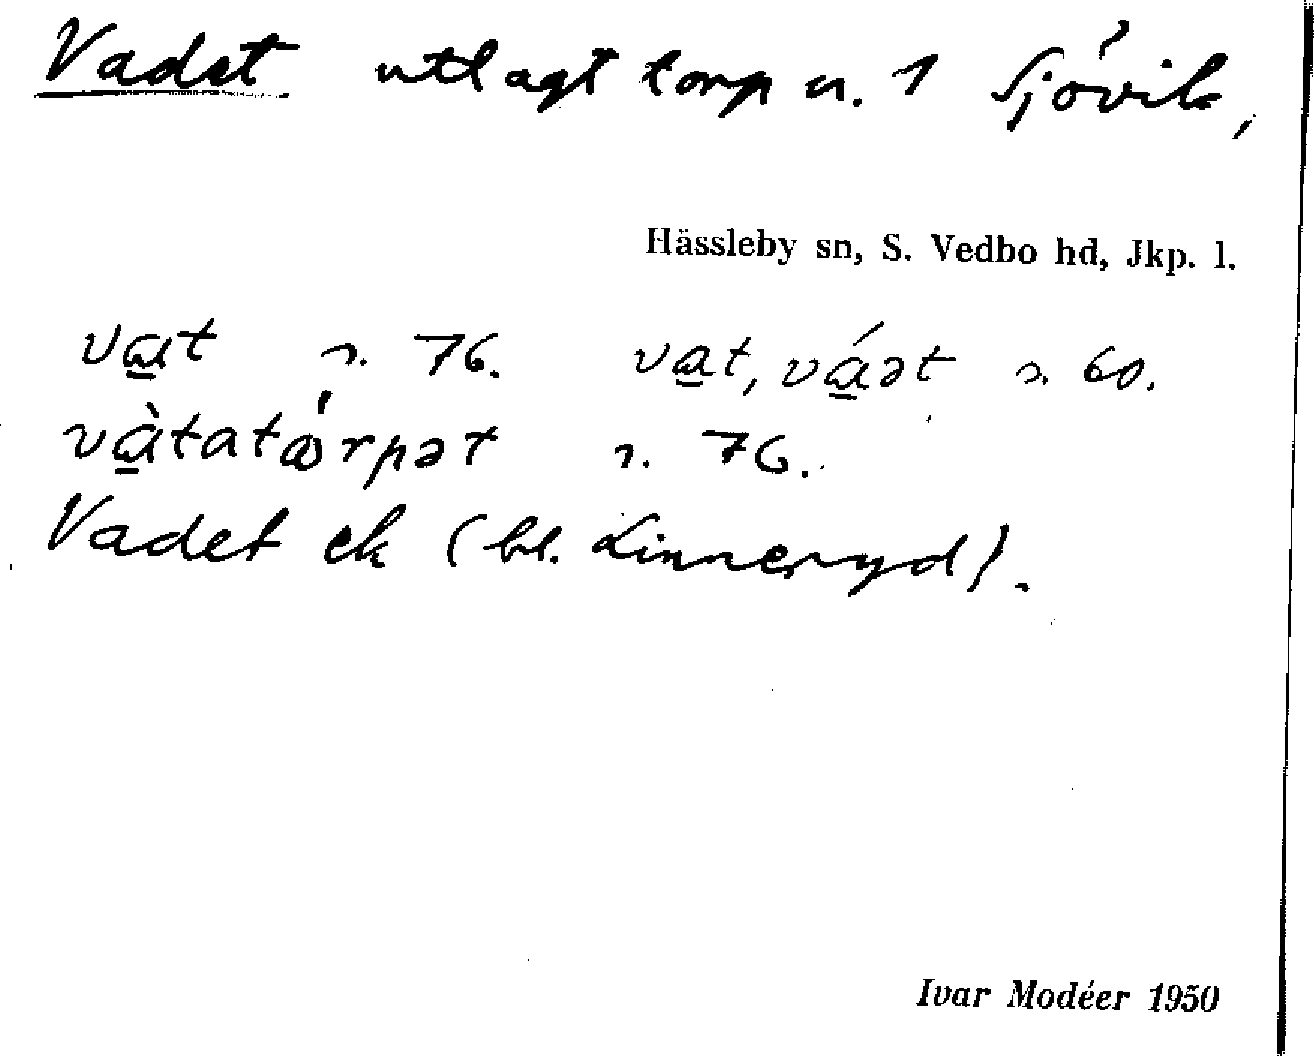 Vadet utlagt torp u. 1 Sjövik,
Hässleby sn, S. Vedbo hd, Jkp. l.
va̲t s. 76. va̲t, vá̲ət s. 60.
và̲tatǿrpət s. 76.
Vadet ek (bl. Linneryd).
Ivar Modéer 1950